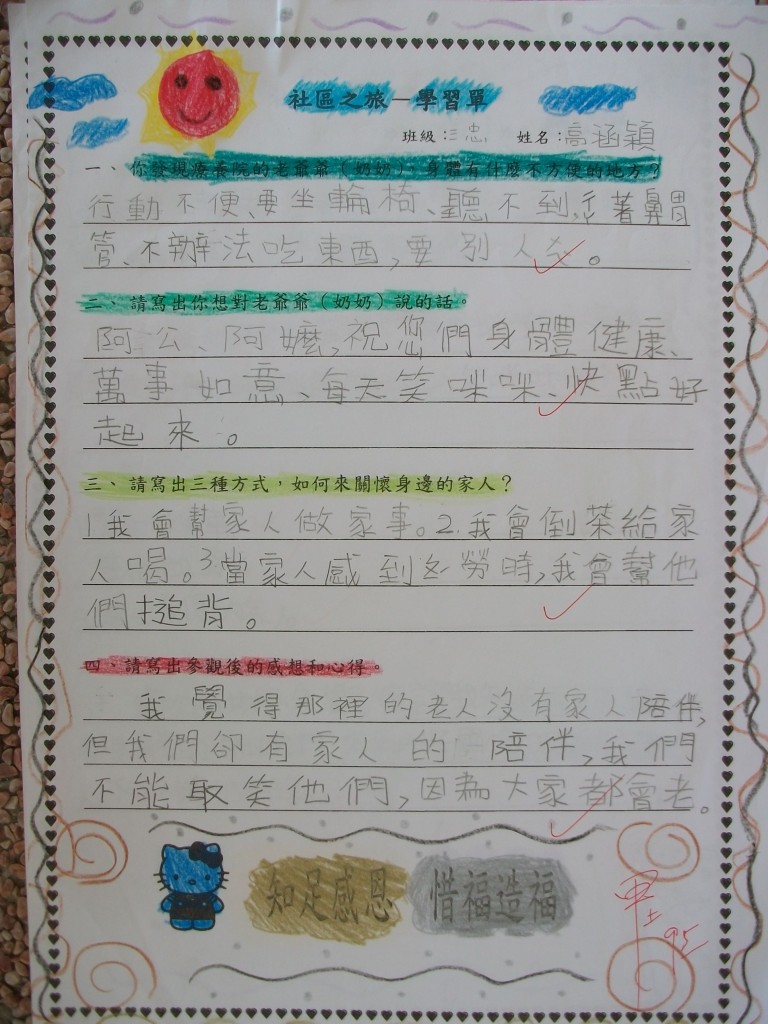 社區之旅－學習單
班級：三忠 姓名：高涵穎
一、你發現療養院的老爺爺（奶奶），身體有什麼不方便的地方？
行動不便、要坐輪椅、聽不到、著鼻胃
管、不辦法吃東西，要別人。
二、請寫出你想對老爺爺（奶奶）說的話。
阿公、阿嬤，祝您們身體健康、
萬事如意、每天笑咪咪、快點好
起來。
三、請寫出三種方式，如何來關懷身邊的家人？
1我會幫家人做家事。2.我會倒茶給家
人喝。3當家人感到勞時，我會幫他
們搥背。
四、請寫出參觀後的感想和心得。
我覺得那裡的老人沒有家人陪伴，
但我們卻有家人的陪伴，我們
不能取笑他們，因為大家都會老。
知足感恩 惜福造福
甲上
95